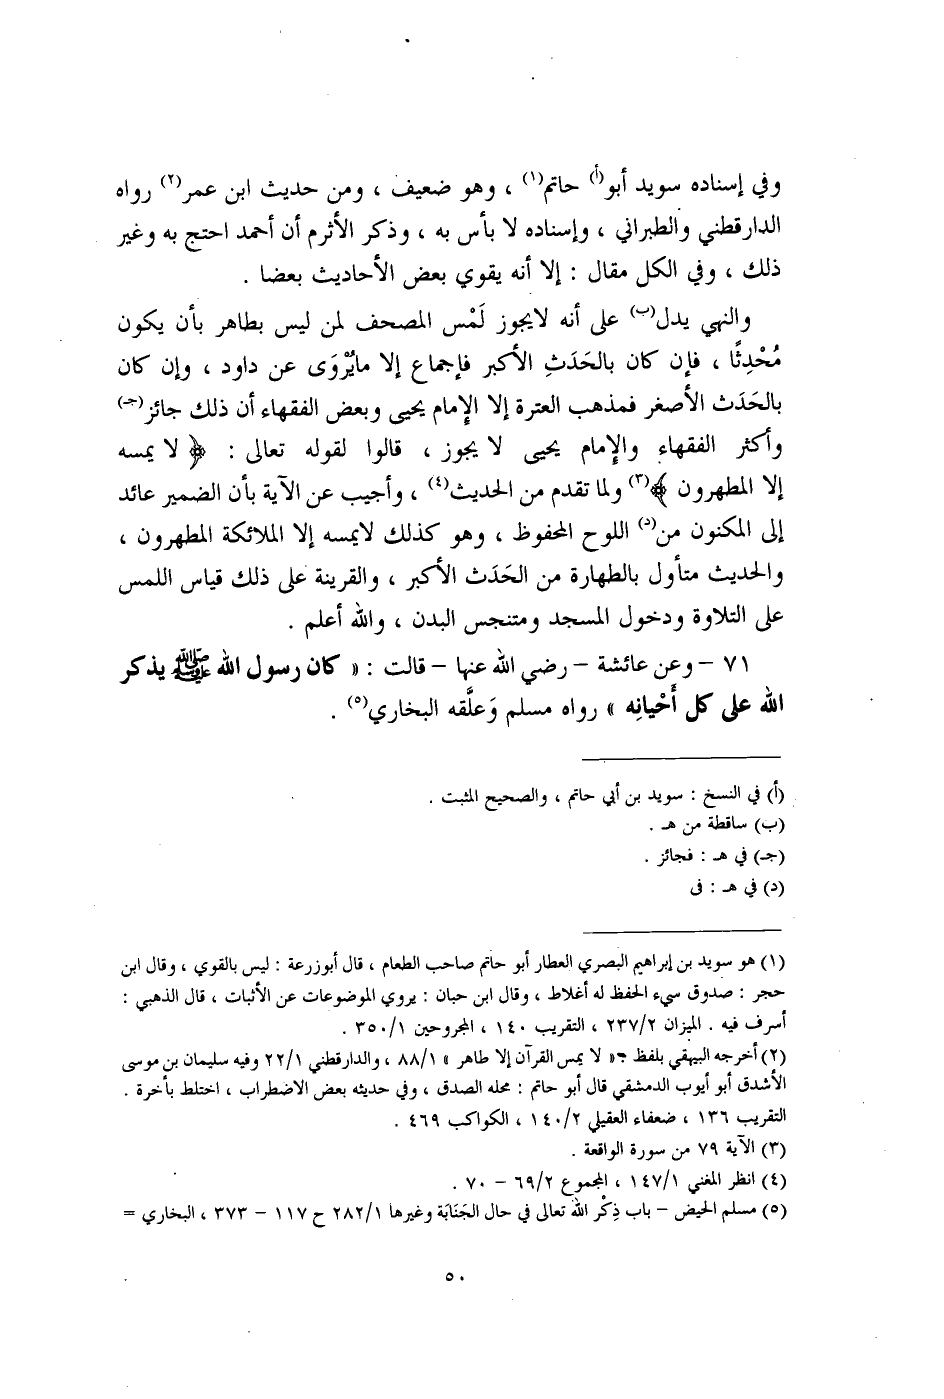 وفي إسناده سويد أبو(أ) حاتم(١) ، وهو ضعيف ، ومن حديث ابن عمر(٢) رواه
الدارقطني والطبراني ، وإسناده لا بأس به ، وذكر الأثرم أن أحمد احتج به وغير
ذلك ، وفي الكل مقال : إلا أنه يقوي بعض الأحاديث بعضا .
والنهي يدل(ب) على أنه لايجوز لَمْس المصحف لمن ليس بطاهر بأن يكون
مُحْدِثًا ، فإن كان بالحَدَثِ الأكبر فإجماع إلا مايُرْوَى عن داود ، وإن كان
بالحَدَث الأصغر فمذهب العترة إلا الإمام يحيى وبعض الفقهاء أن ذلك جائز(جـ)
وأكثر الفقهاء والإمام يحيى لا يجوز ، قالوا لقوله تعالى : ﴿ لا يمسه
إلا المطهرون ﴾(٣) ولما تقدم من الحديث(٤) ، وأجيب عن الآية بأن الضمير عائد
إلى المكنون من(د) اللوح المحفوظ ، وهو كذلك لايمسه إلا الملائكة المطهرون ،
والحديث متأول بالطهارة من الحَدَث الأكبر ، والقرينة على ذلك قياس اللمس
على التلاوة ودخول المسجد ومتنجس البدن ، والله أعلم .
٧١ – وعن عائشة – رضي الله عنها – قالت : « كان رسول الله ﷺ يذكر
الله على كل أَحْيانِه » رواه مسلم وَعلَّقه البخاري(٥) .
(أ) في النسخ : سويد بن أبي حاتم ، والصحيح المثبت .
(ب) ساقطة من هـ .
(جـ) في هـ : فجائز .
(د) في هـ : فى
(١) هو سويد بن إبراهيم البصري العطار أبو حاتم صاحب الطعام ، قال أبوزرعة : ليس بالقوي ، وقال ابن
حجر : صدوق سيء الحفظ له أغلاط ، وقال ابن حبان : يروي الموضوعات عن الأثبات ، قال الذهبي :
أسرف فيه . الميزان ٢٣٧/٢ ، التقريب ١٤٠ ، المجروحين ٣٥٠/١ .
(٢) أخرجه البيهقي بلفظ « لا يمس القرآن إلا طاهر » ٨٨/١ ، والدارقطني ٢٢/١ وفيه سليمان بن موسى
الأشدق أبو أيوب الدمشقي قال أبو حاتم : محله الصدق ، وفي حديثه بعض الاضطراب ، اختلط بأخرة .
التقريب ١٣٦ ، ضعفاء العقيلي ١٤٠/٢ ، الكواكب ٤٦٩ .
(٣) الآية ٧٩ من سورة الواقعة .
(٤) انظر المغني ١٤٧/١ ، المجموع ٦٩/٢ – ٧٠ .
(٥) مسلم الحيض – باب ذِكْر الله تعالى في حال الجَنَابَة وغيرها ٢٨٢/١ ح ١١٧ – ٣٧٣ ، البخاري =
٥٠